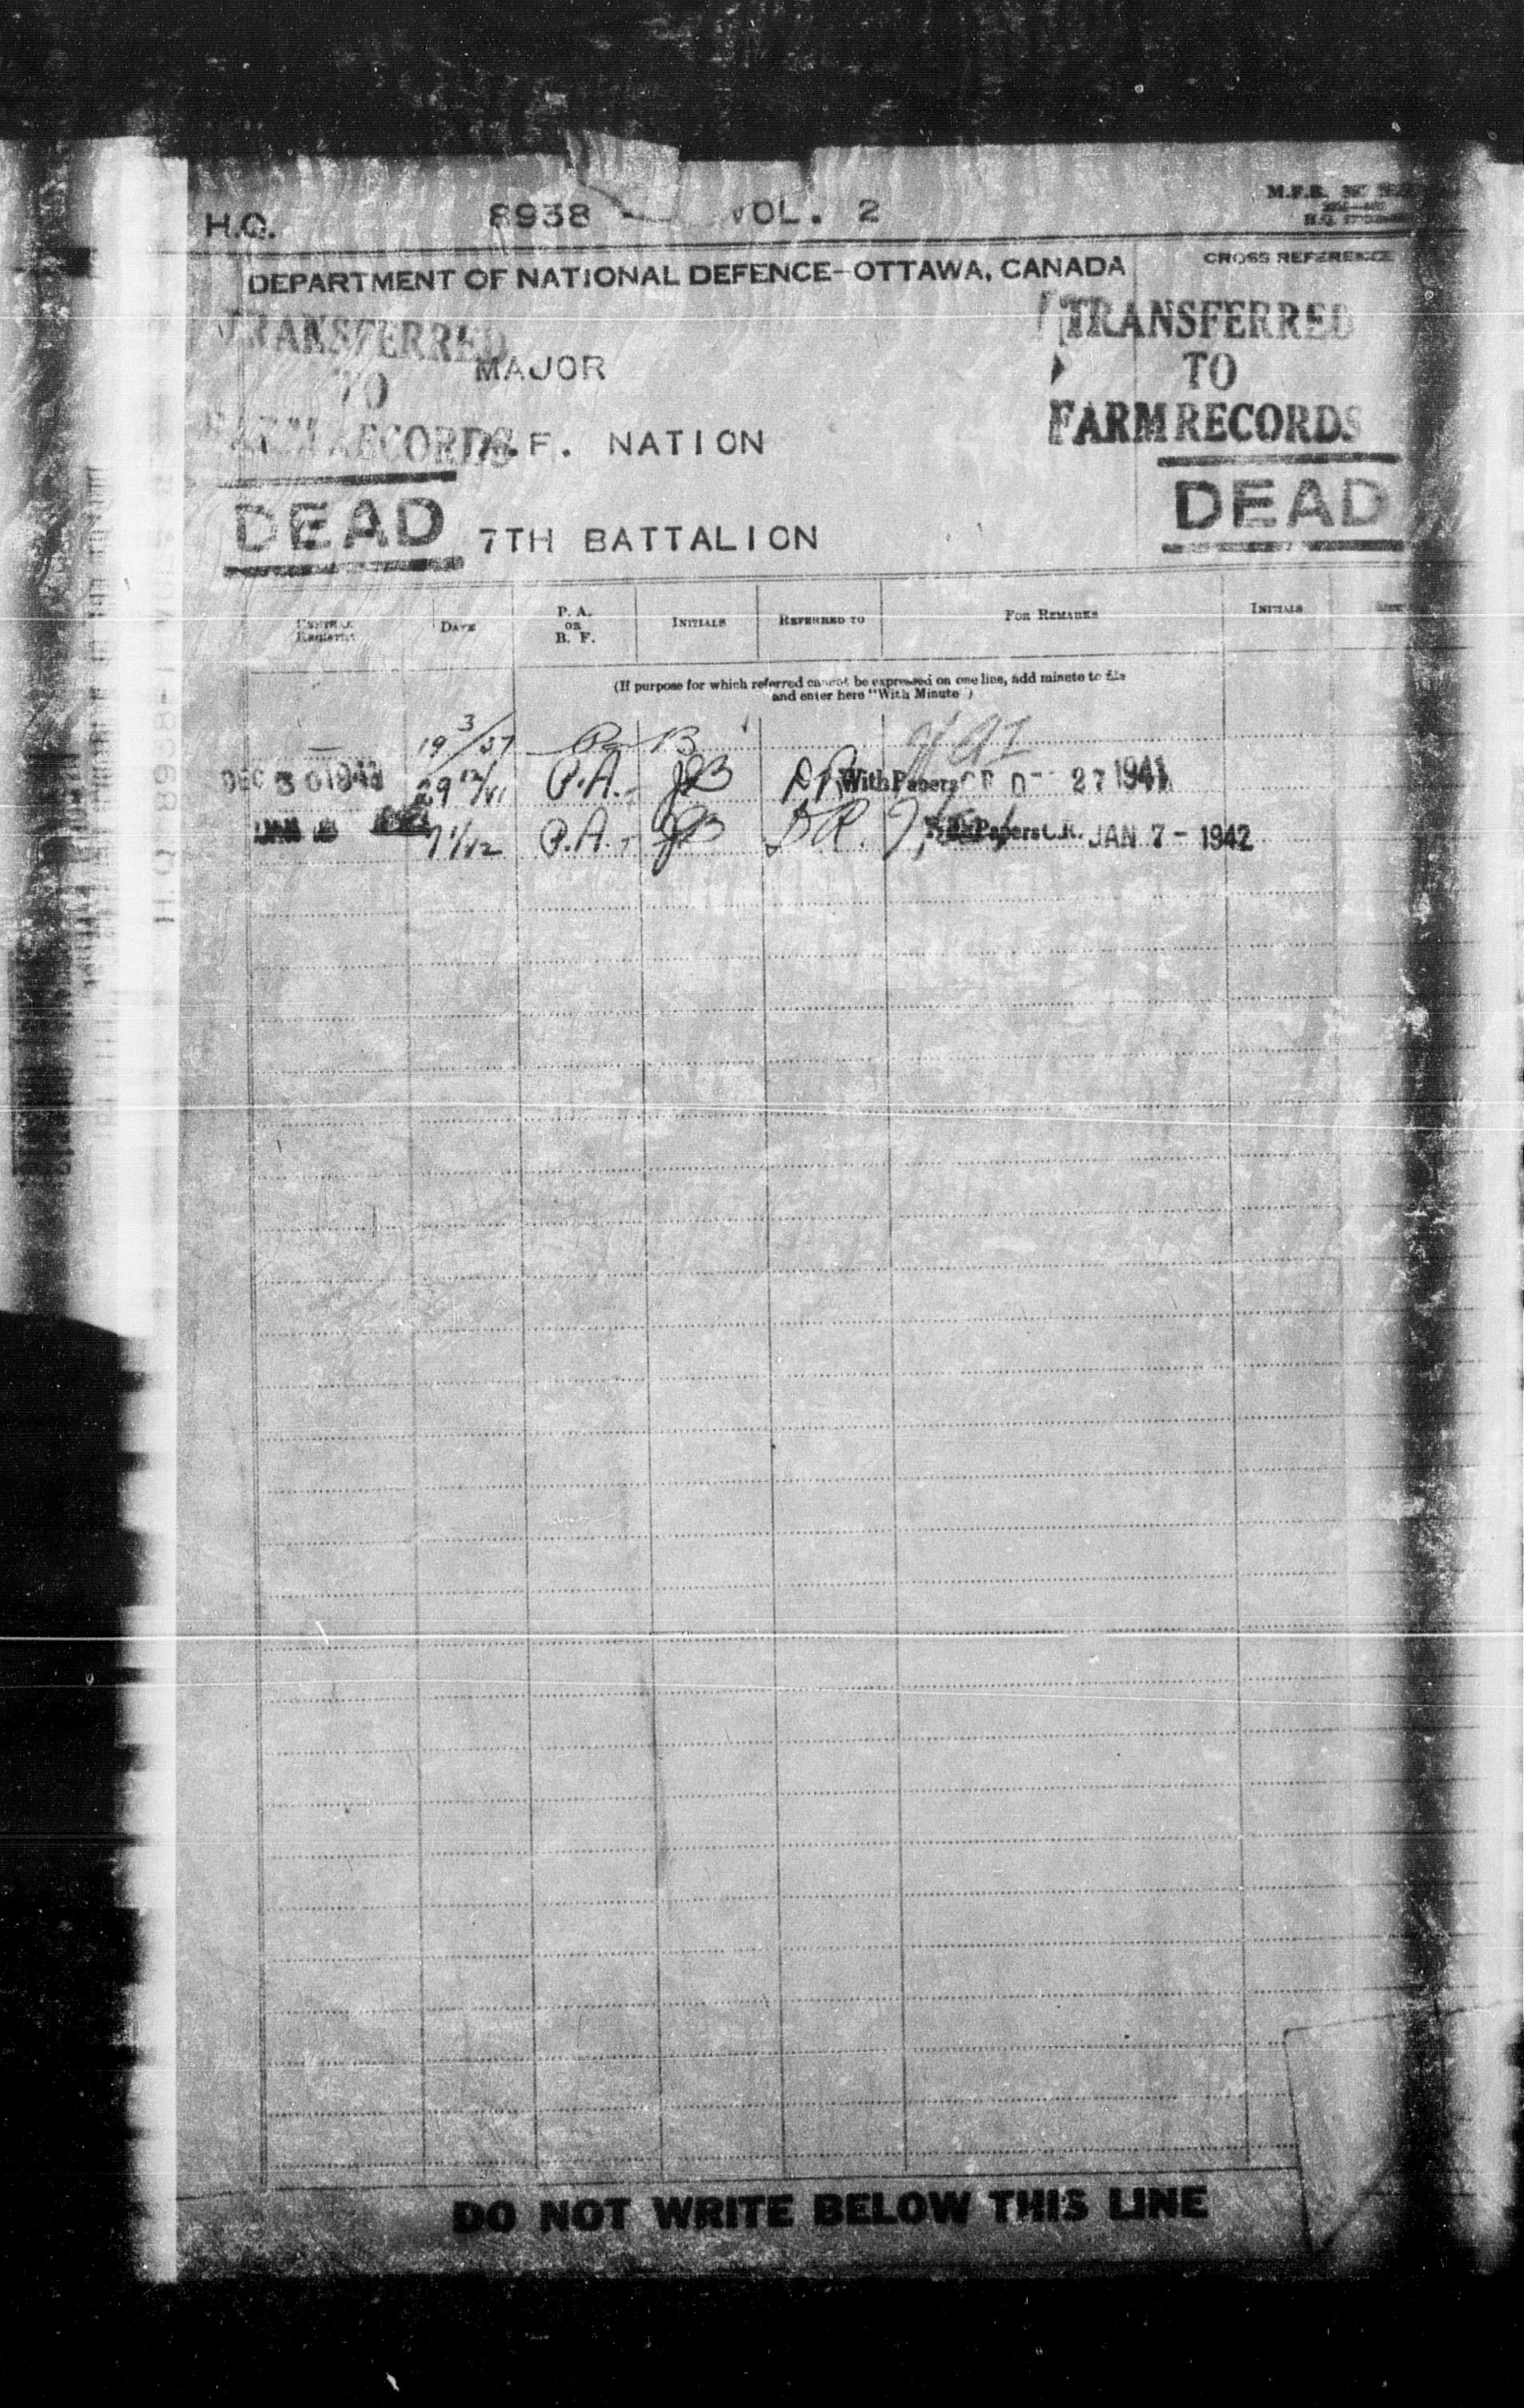 H.Q. 8938 - VOL. 2
M.F.B.
H.Q.
DEPARTMENT OF NATIONAL DEFENCE-OTTAWA, CANADA
CROSS REFERENCE
TRANSFERRED
TO
FARM RECORDS
DEAD
MAJOR
F. NATION
7TH BATTALION
TRANSFERRED
TO
FARM RECORDS
DEAD
CENTRAL REGISTRY DATE P. A. OR B. F. INITIALS REFERRED TO FOR REMARKS INITIALS
(If purpose for which referred cannot be expressed on one line, add minute to file
and enter here "With Minute")
19 3/37
DEC 30 1941 29 12/41 P.A. JB With Papers 27 1941
JAN 7 1/42 P.A. JB D R. Papers C.R. JAN 7 - 1942
DO NOT WRITE BELOW THIS LINE